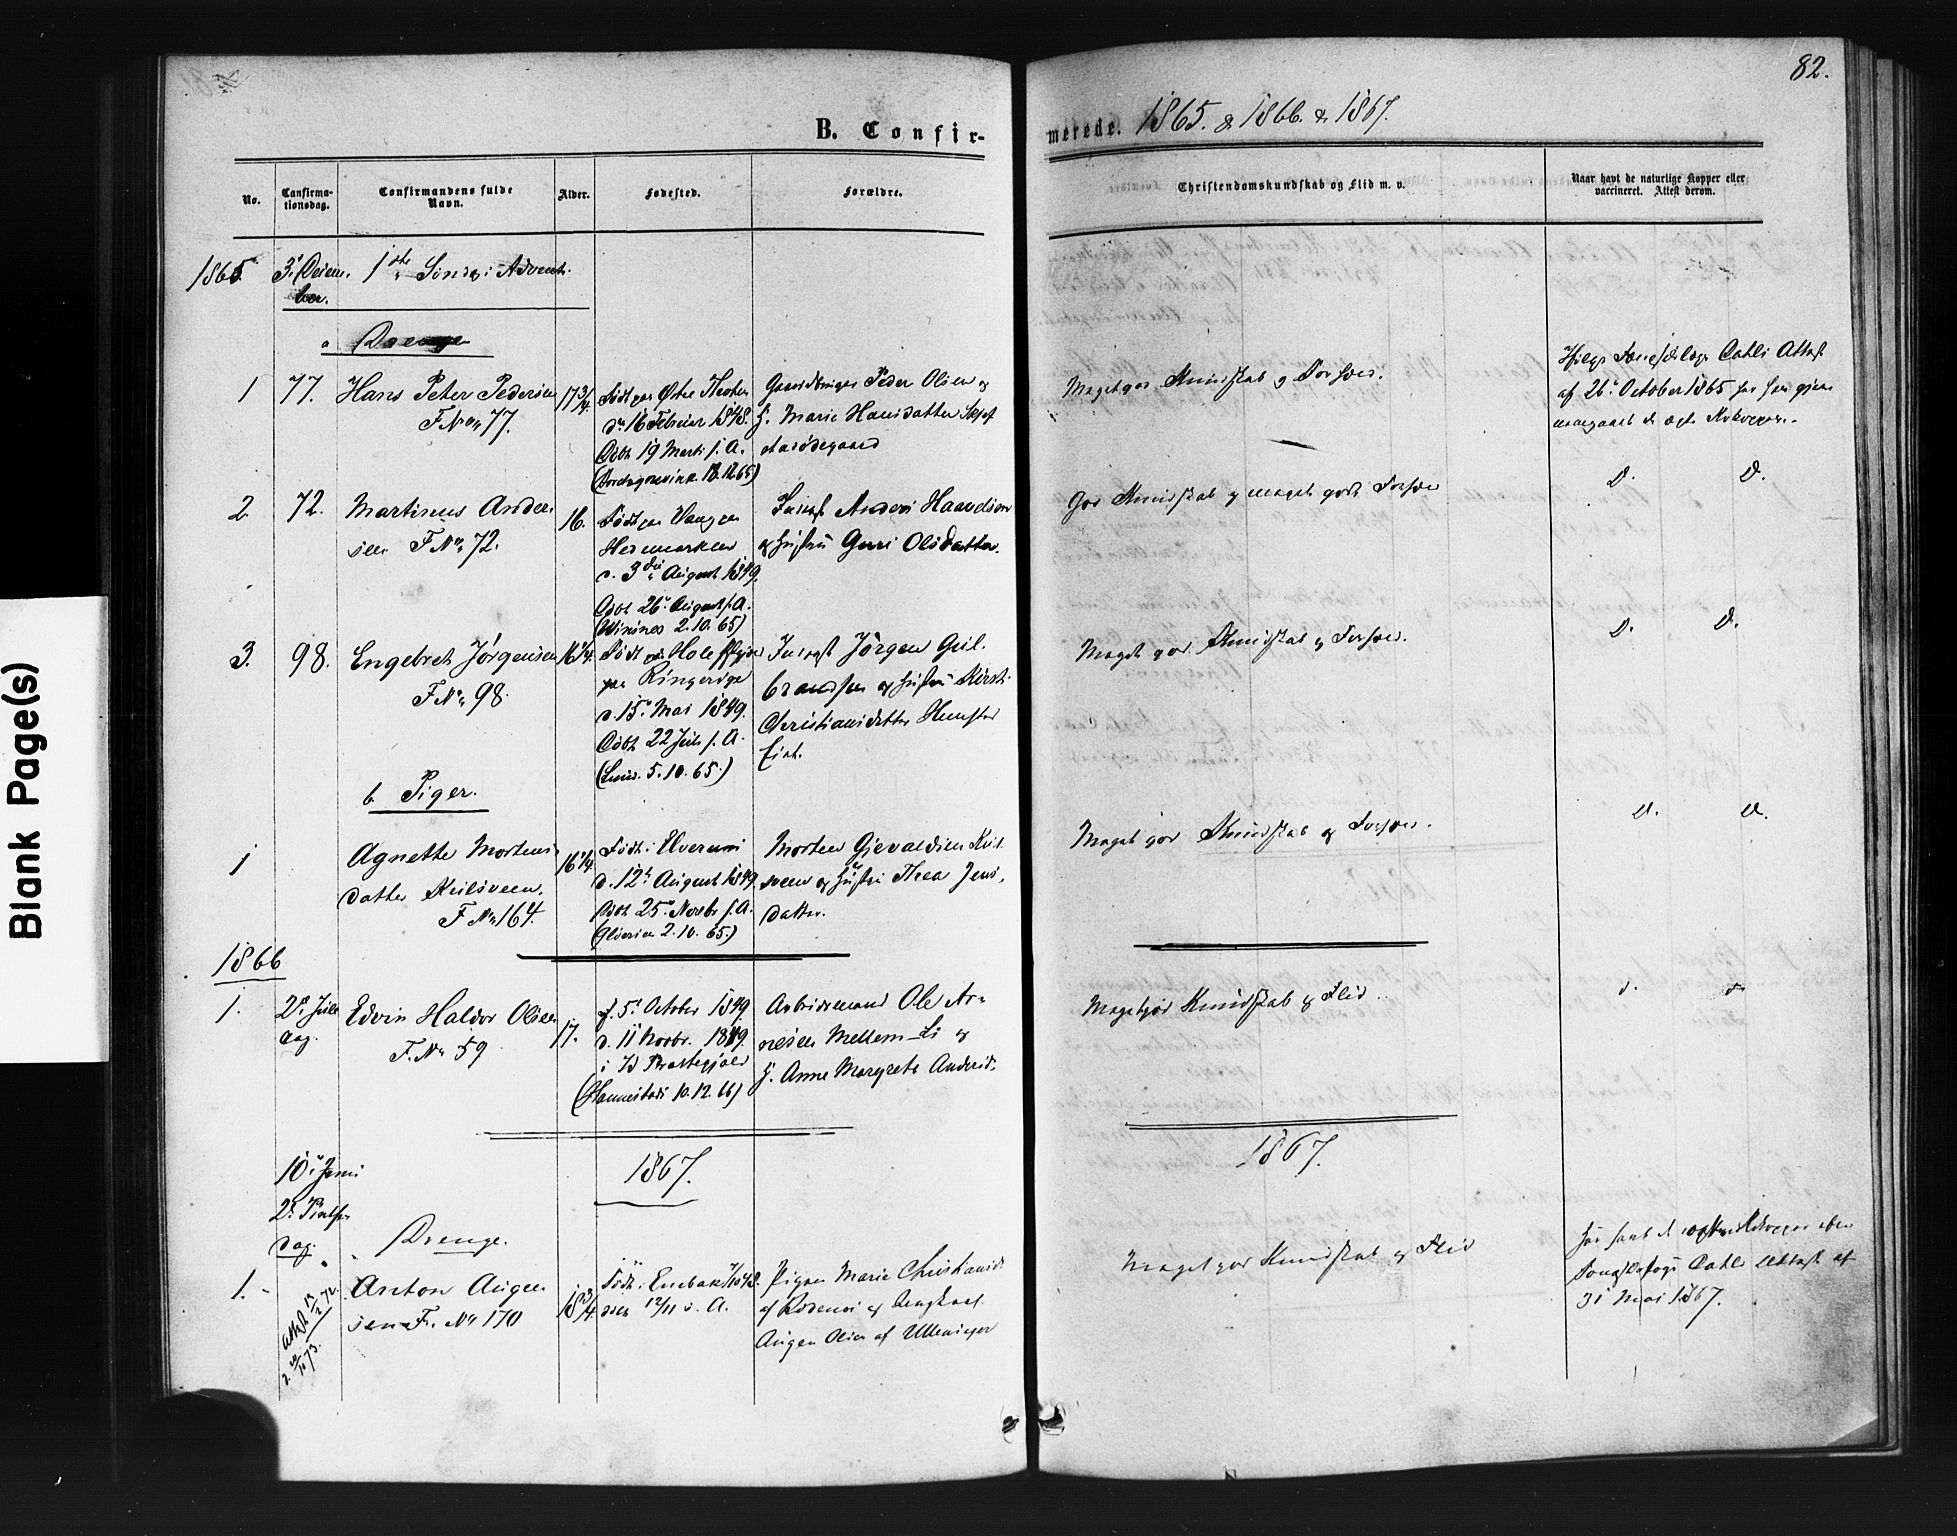 82.
B. Confir-
merede. 1865. & 1866. & 1867.
No.
Confirma-
tionsdag.
Confirmandens fulde
Navn.
Alder.
Fødested.
Forældre.
Christendomskundskab og Flid m. v.
Naar havt de naturlige Kopper eller
vaccineret. Attest derom.
1865
3. Decem-
ber.
1ste Sønd. i Advent.
a Drenge
1
77.
Hans Peter Pedersen
F No 77.
17 3/4
Født paa Østre Thoten
d. 16 Februar 1848.
Døbt 19 Marts s. A.
Gaardbruger Peder Olsen og
H. Marie Hansdatter
Meget god Kundskab og Forhold.
Ifølge Attest
af 26. October 1865 har han gjen-
nemgaaet de
2
72.
Martinus Ander-
sen F No 72.
16.
Født paa Vang paa
Hedemarken
d. 3die August 1849.
Døbt 26. August s. A.
2.10.65)
Inderst Anders Haavelsen
og Hustru Guri Olsdatter.
God Kundskab og meget godt Forhold
D. D.
3.
98.
Engebret Jørgensen
F No 98.
16 1/4
Født paa Hole
paa Ringerige
d. 15. Mai 1849.
Døbt 22 Juli s. A.
5.10.65.)
Inderst Jørgen Gul-
brandsen og Hustru Kirsti
Christiansdatter
Eiet.
Meget god Kundskab og Forhold.
D. D.
b. Piger.
1
Agnette Mortens-
datter Kulsveen.
F No 164.
16 1/4
Født i Elverum
d. 12. August 1849
Døbt 25. Novbr s. A.
(Elverum 2.10.65.)
Morten Gjevaldsen Kul-
sveen og Hustru Thea Jens-
datter.
Meget god Kundskab og Forhold.
D. D.
1866
1.
2. Jule-
dag.
Edvin Haldor Olsen
F. No 59
17.
f. 5. October 1849.
d. 11 Novbr. 1849.
i Id Præstegjæld
10.12.66)
Arbeidsmand Ole Ar-
nesen Mellem-Li og
H. Anne Margrete Andersd.
Meget god Kundskab og Flid.
D. D.
1867.
1867.
10. Juni
2. Pintse-
dag.
Drenge.
1.
Attest 13/2 72.
Anton Augen-
sen F. No 170
18 3/4
Født i Enebak
døbt 12/11 s. A.
Pigen Marie Christiansd.
af Rødenes og Ungkarl
Augen Olsen af
Meget god Kundskab og Flid
har havt de
Attest af
31 Mai 1867.